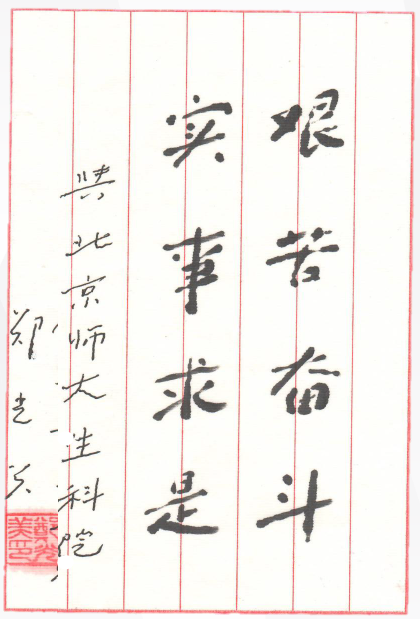 艰苦奋斗
实事求是
与北京师大生科院
郑光美